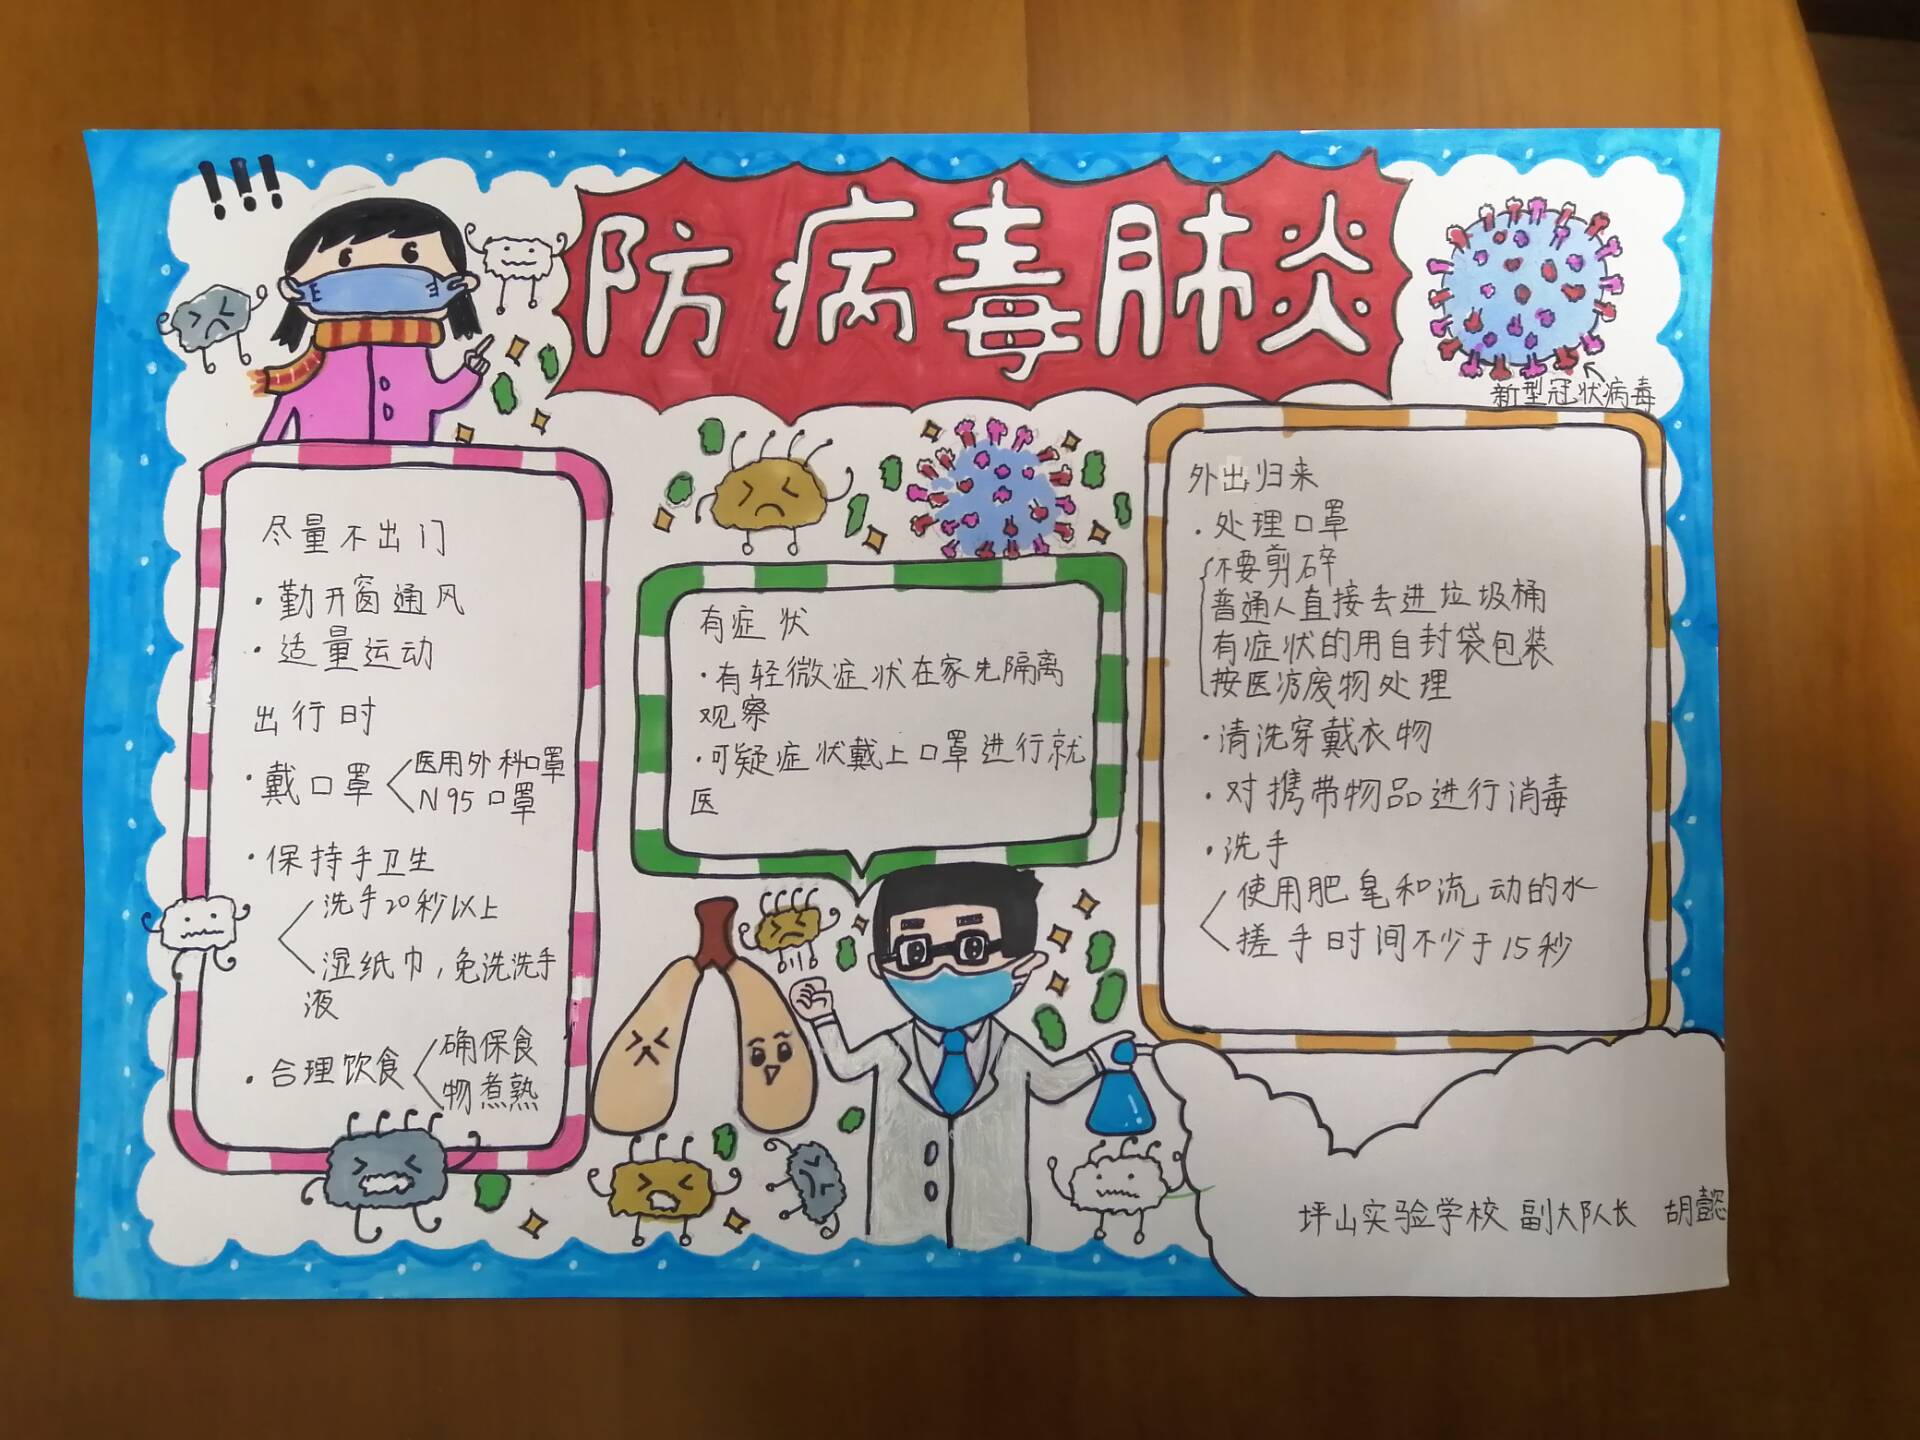 !!!
防病毒肺炎
新型冠状病毒
尽量不出门
·勤开窗通风
·适量运动
出行时
·戴口罩
医用外科口罩
N95口罩
·保持手卫生
洗手20秒以上
湿纸巾,免洗洗手
液
·合理饮食
确保食
物煮熟
有症状
·有轻微症状在家先隔离
观察
·可疑症状戴上口罩进行就
医
外出归来
·处理口罩
不要剪碎
普通人直接丢进垃圾桶
有症状的用自封袋包装
按医疗废物处理
·清洗穿戴衣物
·对携带物品进行消毒
·洗手
使用肥皂和流动的水
搓手时间不少于15秒
坪山实验学校 副大队长 胡懿